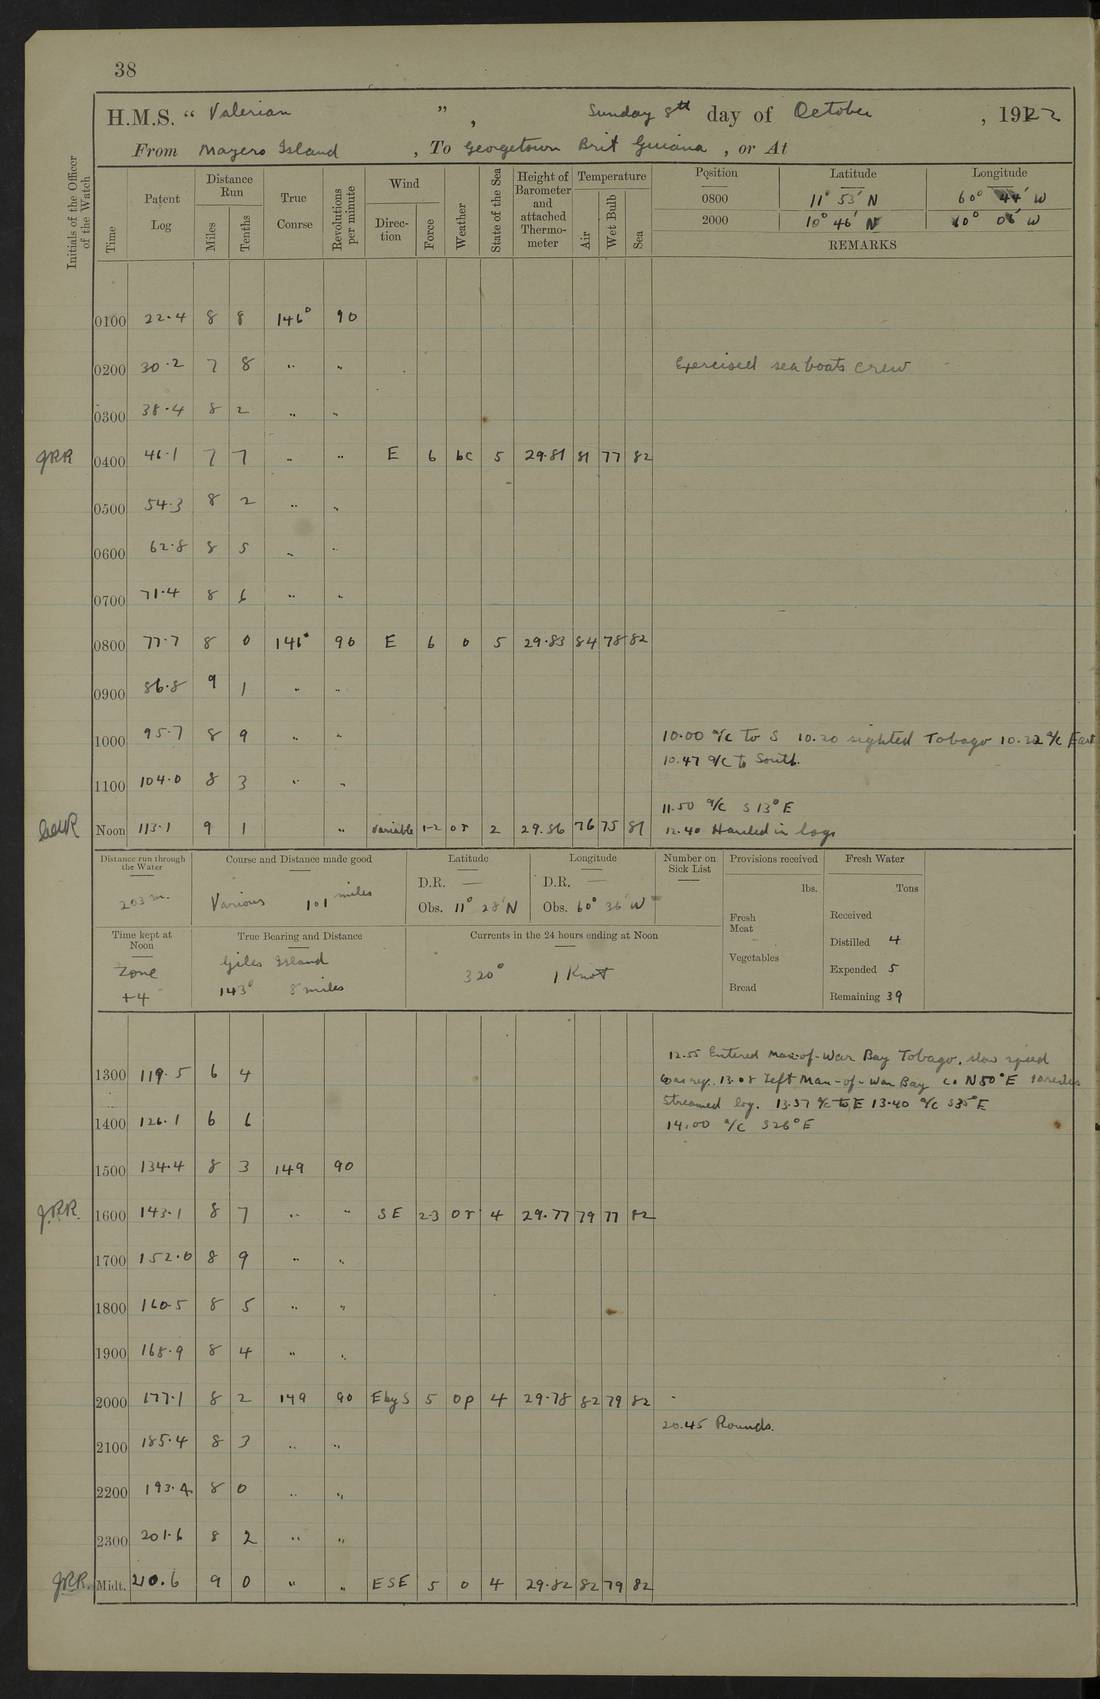 38
H.M.S. “ Valerian ” , Sunday 8th day of October , 1922
From Mayero Island , To Georgetown Brit Guiana , or At
Initials of the Officer of the Watch
Time
Patent Log
Distance Run
Miles
Tenths
True Course
Revolutions per minute
Wind
Direction
Force
Weather
State of the Sea
Height of Barometer and attached Thermometer
Temperature
Air
Wet Bulb
Sea
Position Latitude Longitude
0800 11° 53′ N 60° 44′ W
2000 10° 46′ N 60° 06′ W
REMARKS
0100 22.4 8 8 146° 90
0200 30.2 7 8 .. .. Exercised sea boats crew
0300 38.4 8 2 .. ..
JRR 0400 46.1 7 7 .. .. E 6 bc 5 29.81 81 77 82
0500 54.3 8 2 .. ..
0600 62.8 8 5 .. ..
0700 71.4 8 6 .. ..
0800 77.7 8 0 146° 90 E 6 o 5 29.83 84 78 82
0900 86.8 9 1 .. ..
1000 95.7 8 9 .. .. 10.00 a/c to S 10.20 sighted Tobago 10.22 a/c East
10.47 a/c to South.
1100 104.0 8 3 .. ..
11.50 a/c S 13° E
Noon 113.1 9 1 .. Variable 1-2 or 2 29.86 76 75 81 12.40 Hauled in logs
Distance run through the Water
203 m.
Course and Distance made good
Various 101 miles
Latitude
D.R. —
Obs. 11° 28′ N
Longitude
D.R. —
Obs. 60° 36′ W
Number on Sick List
Provisions received
lbs.
Fresh Meat
Vegetables
Bread
Fresh Water
Tons
Received
Distilled 4
Expended 5
Remaining 39
Time kept at Noon
Zone
+4
True Bearing and Distance
Giles Island
143° 8 miles
Currents in the 24 hours ending at Noon
320° 1 Knot
12.55 Entered Man-of-War Bay Tobago. slow speed
1300 119.5 6 4 as req. 13.08 Left Man-of-War Bay Co N50°E
Streamed log. 13.37 a/c to E 13.40 a/c S35°E
1400 126.1 6 6 14.00 a/c S26°E
1500 134.4 8 3 149 90
J.R.R. 1600 143.1 8 7 .. .. SE 2-3 or 4 29.77 79 77 82
1700 152.0 8 9 .. ..
1800 160.5 8 5 .. ..
1900 168.9 8 4 .. ..
2000 177.1 8 2 149 90 E by S 5 op 4 29.78 82 79 82
20.45 Rounds.
2100 185.4 8 3 .. ..
2200 193.4 8 0 .. ..
2300 201.6 8 2 .. ..
JRR. Midt. 210.6 9 0 .. .. ESE 5 o 4 29.82 82 79 82